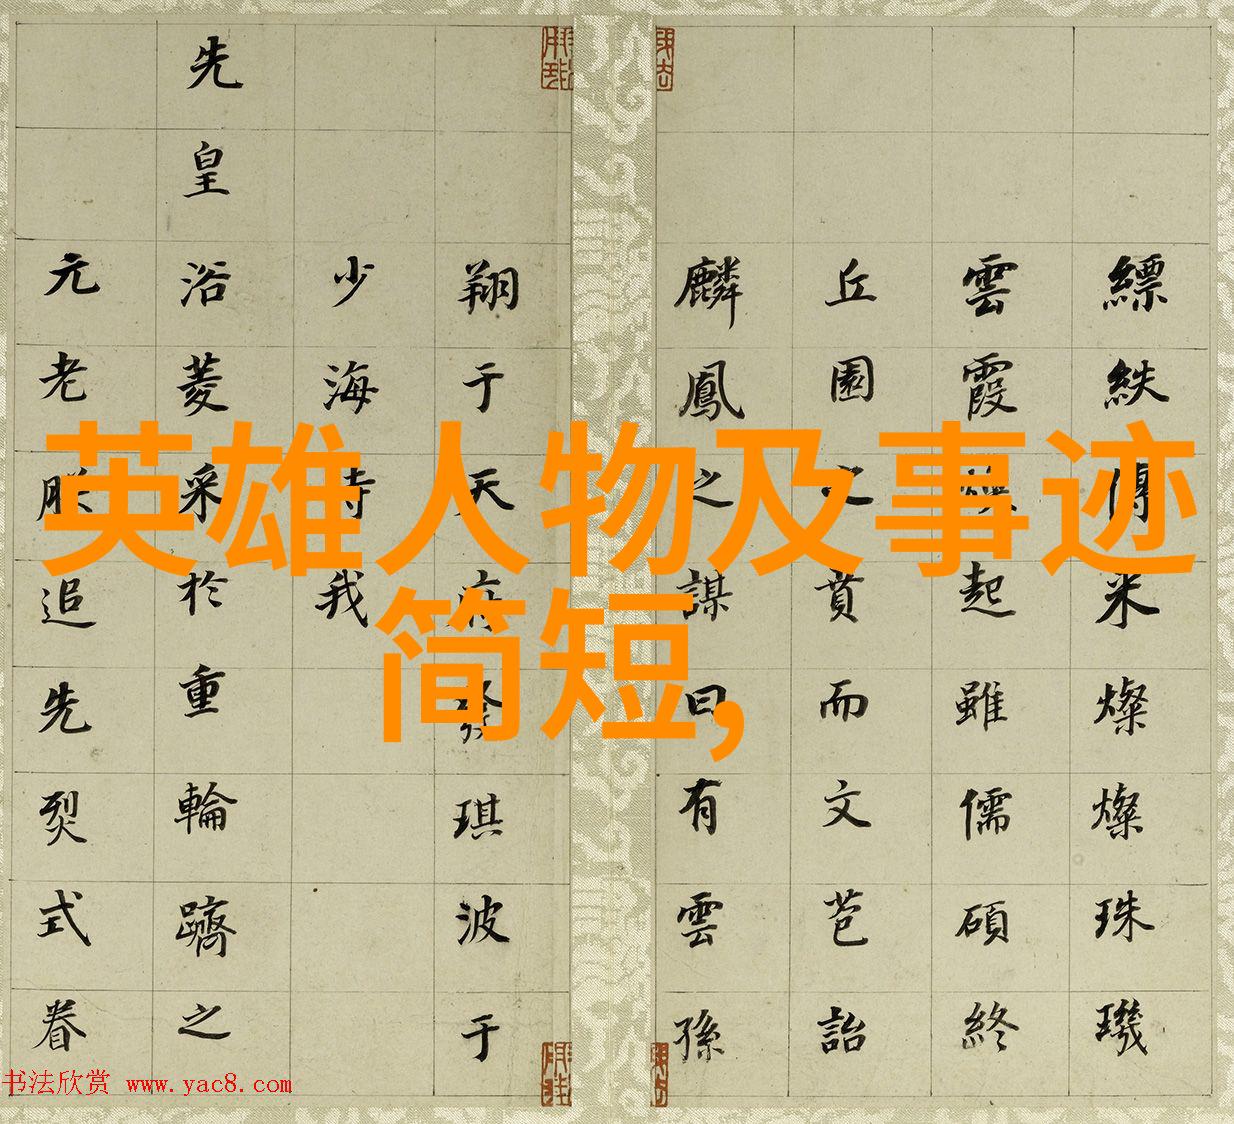 英雄人物及事迹
简短,
縹紩傳米燦燦珠璣
雲霞起雖儒碩終
丘園之賁而文芭詒
麟鳳之謀曰有雲孫
翔于天府發琪波于
少海時我
先皇浴菱采於重輪躋之
元老朕追先烈式眷
书法欣赏 www.yac8.com